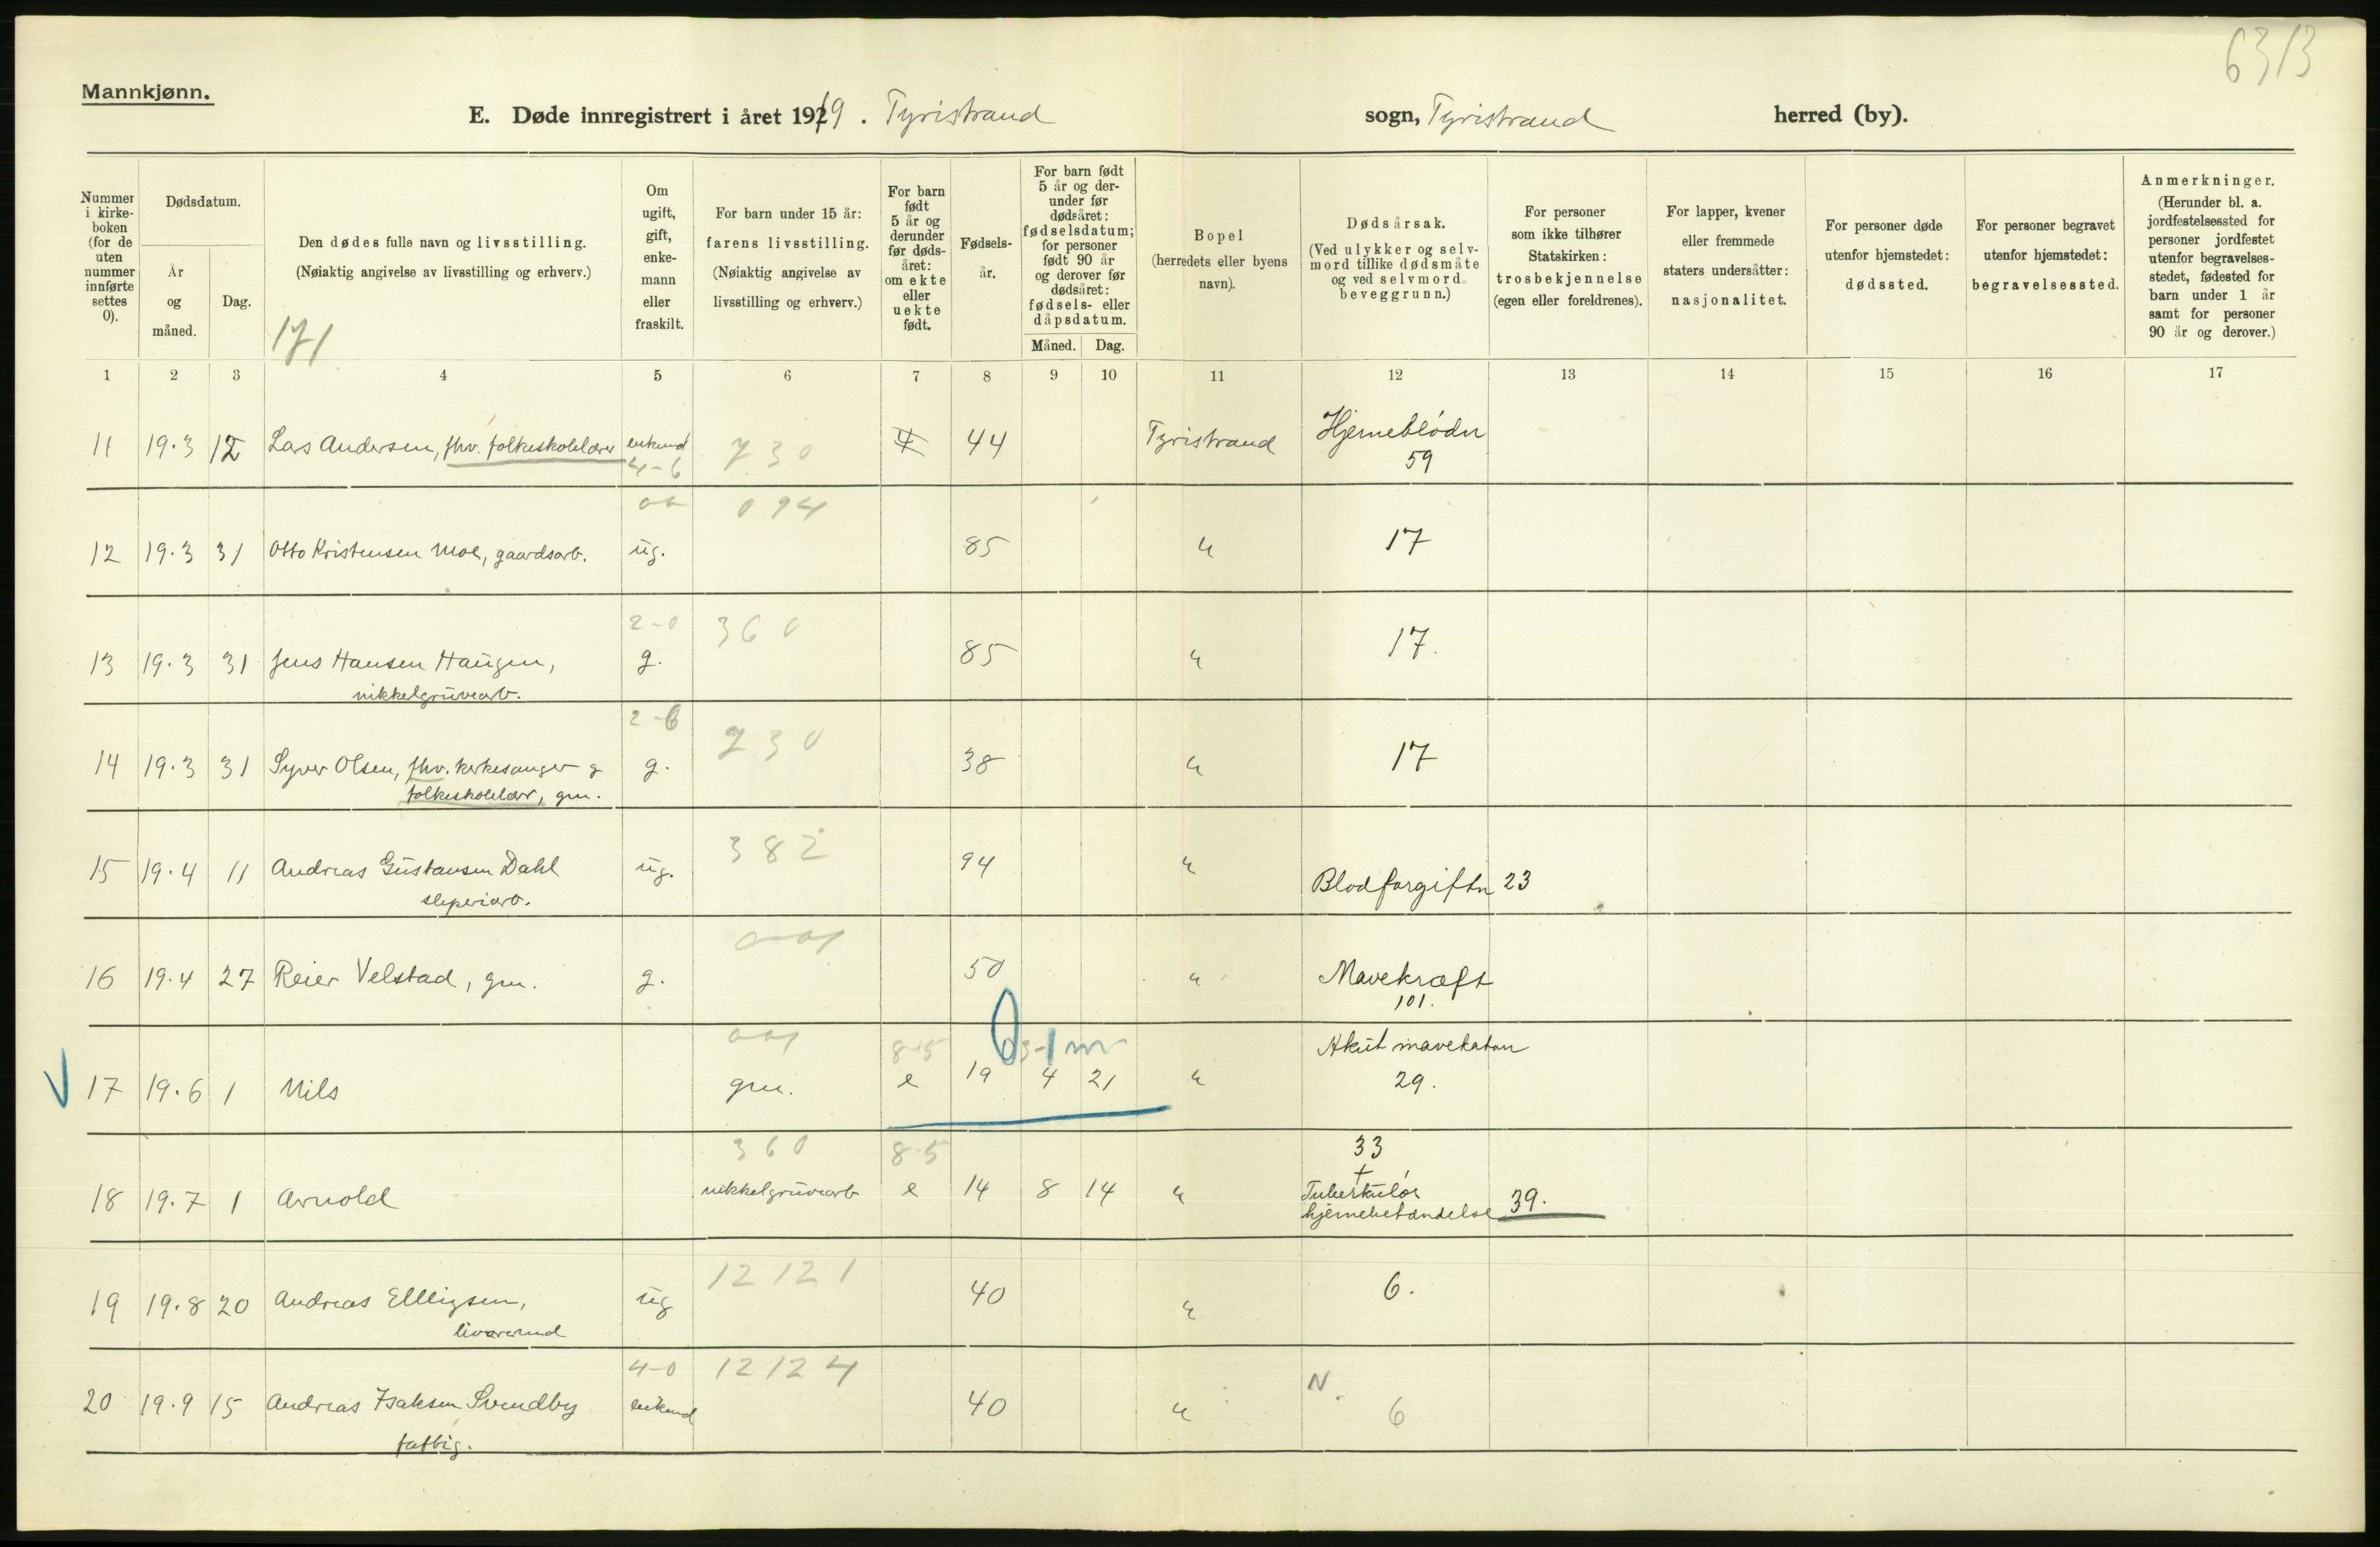 6313
Mannkjønn.
E. Døde innregistrert i året 1919. Tyristrand sogn, Tyristrand herred (by).
Nummer i kirke-boken (for de uten nummer innførte settes 0).
Dødsdatum.
År og måned.
Dag.
Den dødes fulle navn og livsstilling.
(Nøiaktig angivelse av livsstilling og erhverv.)
171
Om ugift, gift, enke-mann eller fraskilt.
For barn under 15 år: farens livsstilling.
(Nøiaktig angivelse av livsstilling og erhverv.)
For barn født 5 år og derunder før døds-året: om ekte eller uekte født.
Fødsels-år.
For barn født 5 år og der-under før dødsåret: fødselsdatum; for personer født 90 år og derover før dødsåret: fødsels- eller dåpsdatum.
Måned. Dag.
Bopel
(herredets eller byens navn).
Dødsårsak.
(Ved ulykker og selv-mord tillike dødsmåte og ved selvmord beveggrunn.)
For personer som ikke tilhører Statskirken: trosbekjennelse (egen eller foreldrenes).
For lapper, kvener eller fremmede staters undersåtter: nasjonalitet.
For personer døde utenfor hjemstedet: dødssted.
For personer begravet utenfor hjemstedet: begravelsessted.
Anmerkninger.
(Herunder bl. a. jordfestelsessted for personer jordfestet utenfor begravelses-stedet, fødested for barn under 1 år samt for personer 90 år og derover.)
1 2 3 4 5 6 7 8 9 10 11 12 13 14 15 16 17
11 19.3 12 Lars Andersen, fhv. folkeskolelærer enkemd 730 44 Tyristrand Hjerneblødn
4-6 59
094
12 19.3 31 Otto Kristensen Moe, gaardsarb. ug. 85 " 17
2-0 360
13 19.3 31 Jens Hansen Haugen, g. 85 " 17.
nikkelgruvearb.
2-6 730
14 19.3 31 Syver Olsen, fhv. kirkesanger g g. 38 " 17
folkeskolelærer, gm.
382
15 19.4 11 Andreas Gustavsen Dahl ug. 94 " Blodforgiftn 23
sliperiarb.
16 19.4 27 Reier Velstad, gm. g. 50 " Mavekræft
101.
8-5 Akut mavekatar
17 19.6 1 Nils gm. e 19 4 21 " 29.
360 8-5 33
18 19.7 1 Arnold nikkelgruvearb e 14 8 14 " Tuberkuløs
hjernebetændelse 39.
12 12 1
19 19.8 20 Andreas Ellingsen, ug 40 " 6.
4-0 12 12 4 N.
20 19.9 15 Andreas Isaksen Svendby enkemd 40 " 6
fattig.